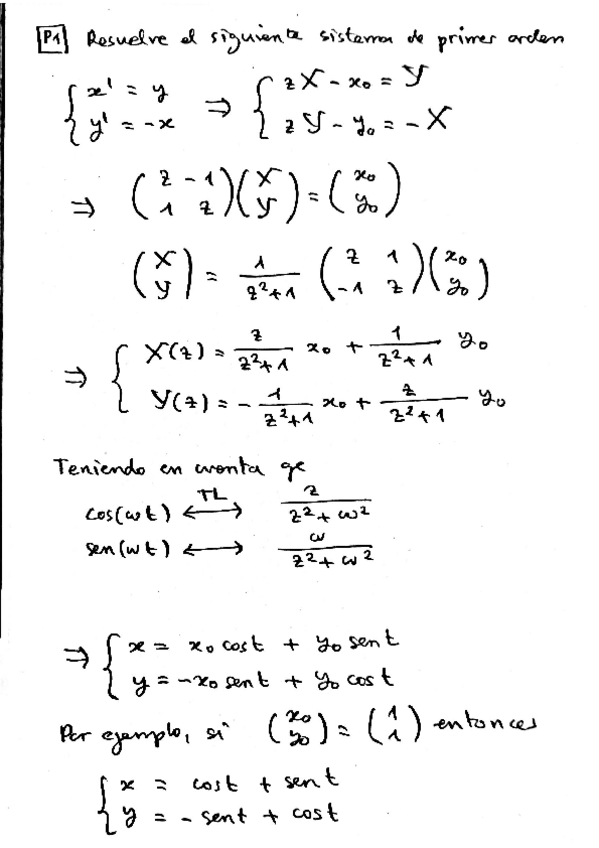 P1 Resuelve el siguiente sistema de primer orden
{ x' = y ⇒ { zX - x₀ = Y
{ y' = -x { zY - y₀ = -X
⇒ (z -1; 1 z)(X; Y) = (x₀; y₀)
(X; Y) = 1/(z²+1) (z 1; -1 z)(x₀; y₀)
⇒ { X(z) = z/(z²+1) x₀ + 1/(z²+1) y₀
{ Y(z) = -1/(z²+1) x₀ + z/(z²+1) y₀
Teniendo en cuenta qe
cos(ωt) ←TL→ z/(z²+ω²)
sen(ωt) ←→ ω/(z²+ω²)
⇒ { x = x₀ cost + y₀ sent
{ y = -x₀ sent + y₀ cost
Por ejemplo, si (x₀; y₀) = (1; 1) entonces
{ x = cost + sent
{ y = - sent + cost